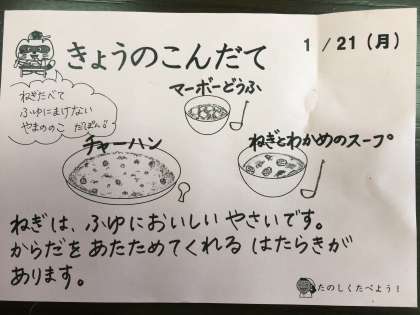 きょうのこんだて
1/21(月)
ねぎたべて
ふゆにまけない
やまののこ だぽん!
マーボーどうふ
チャーハン
ねぎとわかめのスープ
ねぎは、ふゆにおいしい やさいです。
からだを あたためてくれる はたらきが
あります。
たのしくたべよう!